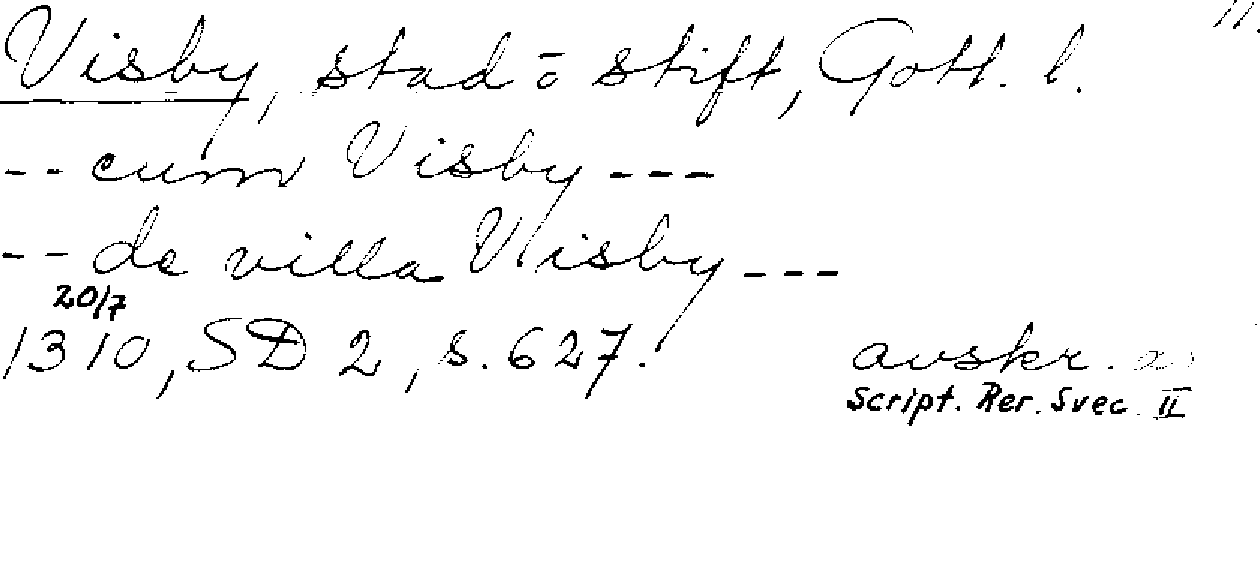 Visby, stad o stift, Gotl. l. 11.
-- cum Visby ---
-- de villa Visby ---
20/7
1310, SD 2, s. 627. avskr.
Script. Rer. Svec. II